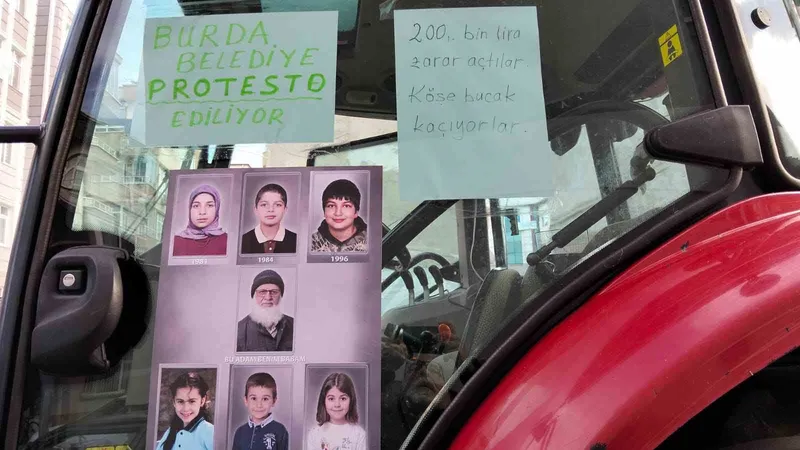 BURDA
BELEDİYE
PROTESTO
EDİLİYOR
200,. bin lira
zarar açtılar.
Köşe bucak
kaçıyorlar.
1984
1996
BU ADAM BENİM BABAM